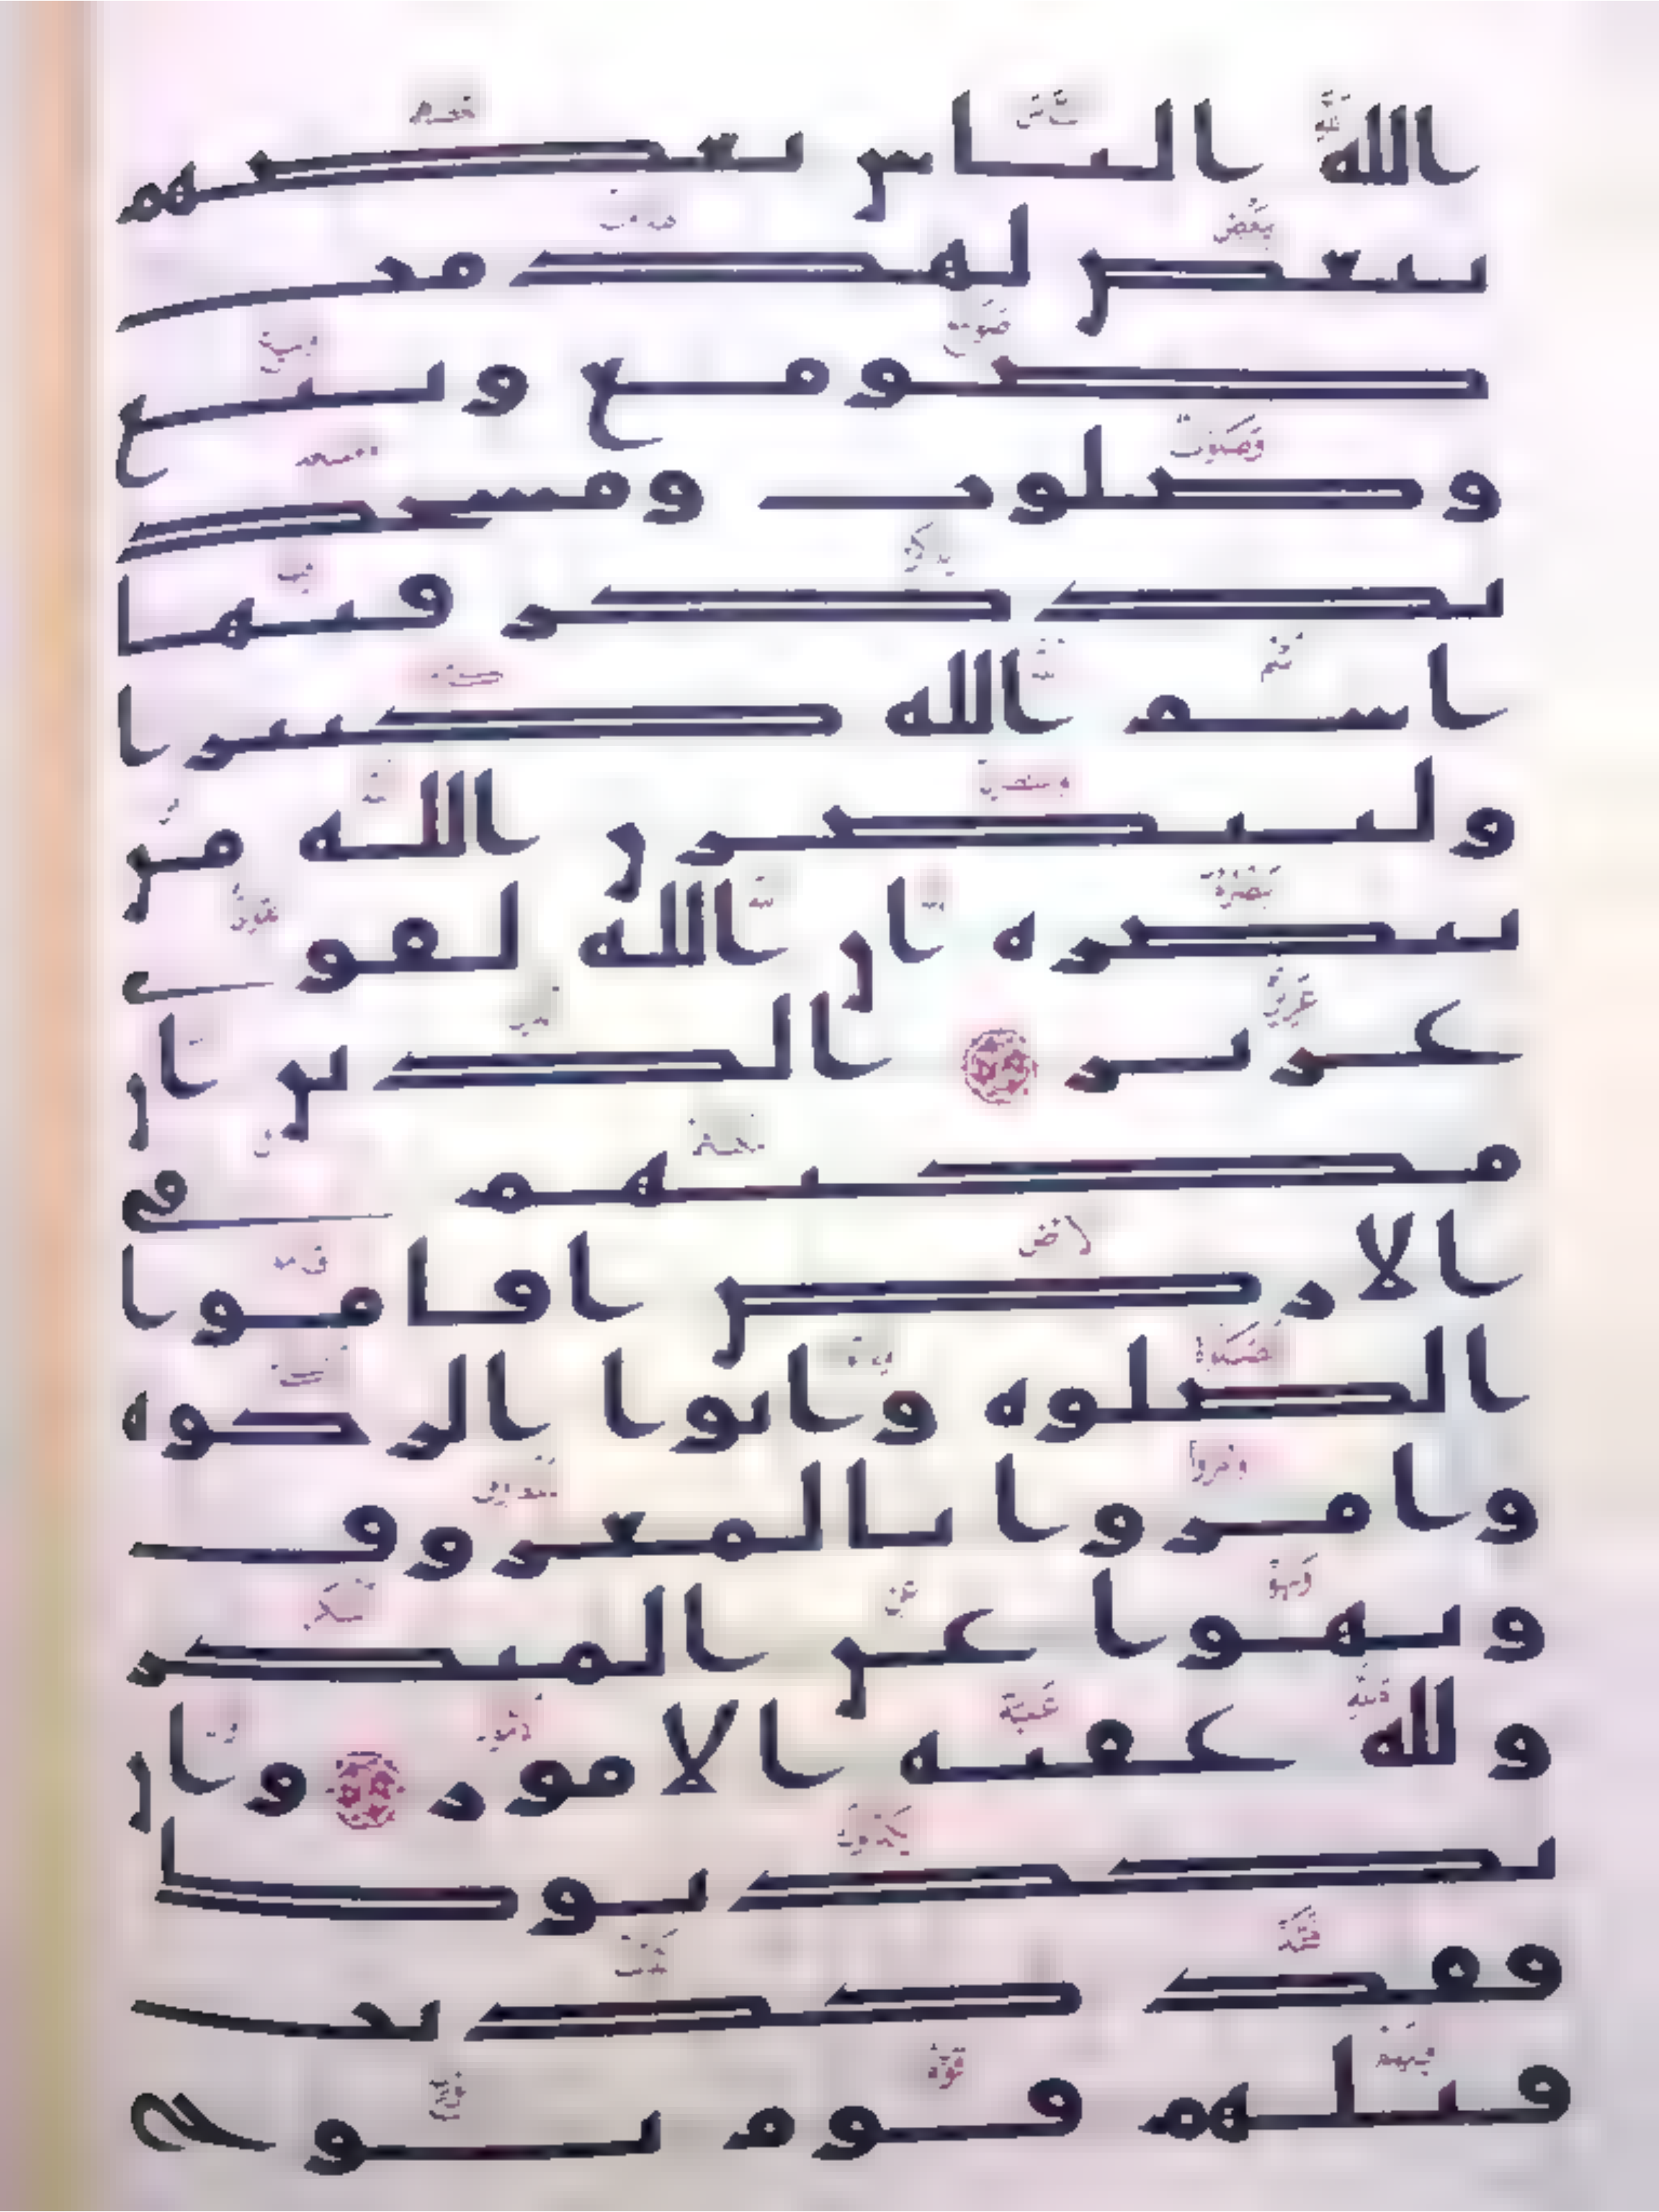 الله الناس بعضهم
ببعض لهدمت
صومع وبيع
وصلوت ومسجد
يذكر فيها
اسم الله كثيرا
ولينصرن الله من
ينصره ان الله لقوي
عزيز الذين ان
مكنهم في
الارض اقاموا
الصلوه واتوا الزكوه
وامروا بالمعروف
ونهوا عن المنكر
ولله عقبه الامور وان
يكذبوك
فقد كذبت
قبلهم قوم نوح